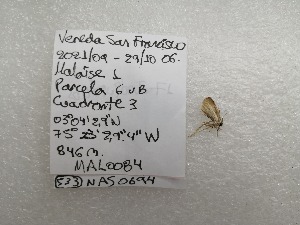 Vereda San Francisco
2021/09 - 29/10 06.
Malaise 1
Parcela 6 UB
Cuadrante 3
03°04'2,9"N
75° 23' 2,9"4"W
846 m.
MAL0084
533 NAS0694